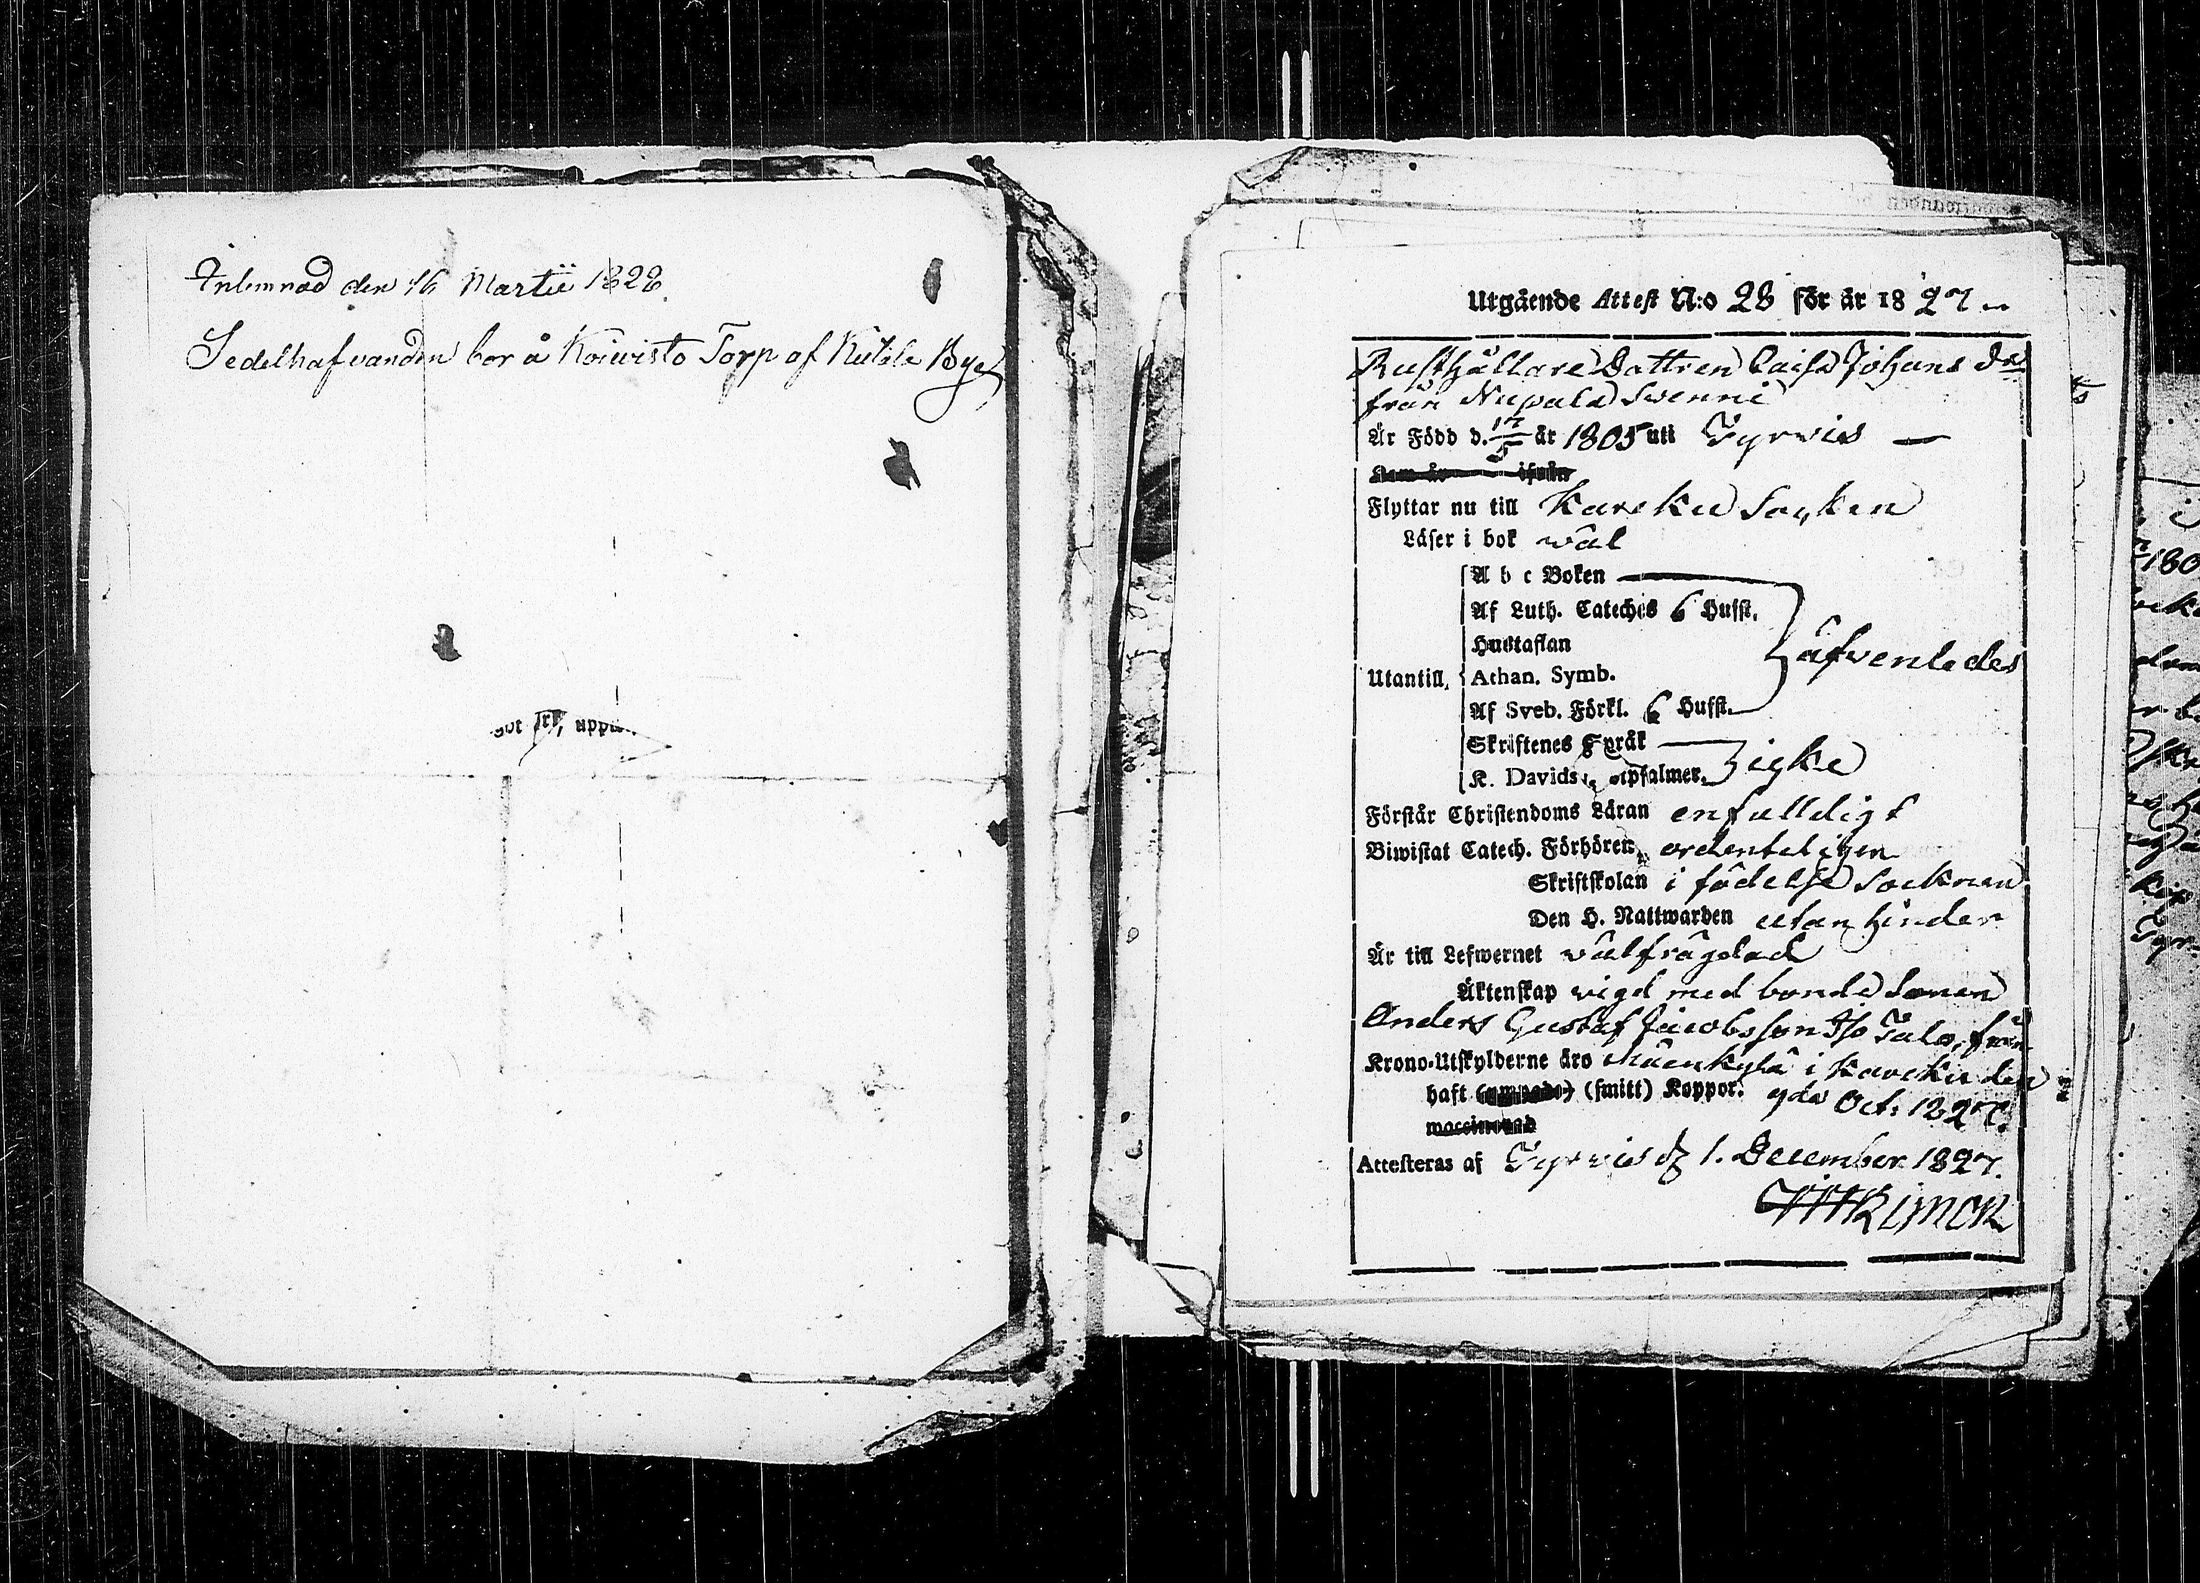 Inlemnad den 16 Martii 1828.
Sedelhafvanden bor å Koivisto Torp af Kutala Bye
Utgående Attest N:o 28 för år 1827
Rusthållare Dottren Caisa Johans dr
från Nupala Svenni
Är Född d. 17/5 år 1805 uti Tyrvis —
Kom år ifrån
Flyttar nu till Karcku Socken
Läser i bok wäl
A b c Boken
Af Luth. Cateches 6 Hufst.
Hustaflan
Utantill, Athan. Symb. äfvenledes
Af Sveb. Förkl. 6 Hufst.
Skriftenes Språk
K. Davids Botpsalmer. icke
Förstår Christendoms Läran enfalldigt
Biwistat Catech. Förhören, ordenteligen
Skriftskolan i födelse Socknen
Den H. Nattwarden utan hinder
Är till Lefwernet välfrägdad
Äktenskap vigd med bonde Sonen
Anders Gustaf Jacobsson Iso Talo, från
Krono-Utskylderne äro i Karcku den
haft (smitt) Koppor. 9de Oct. 1827.
waccinerad
Attesteras af Tyrvis d. 1. December 1827.